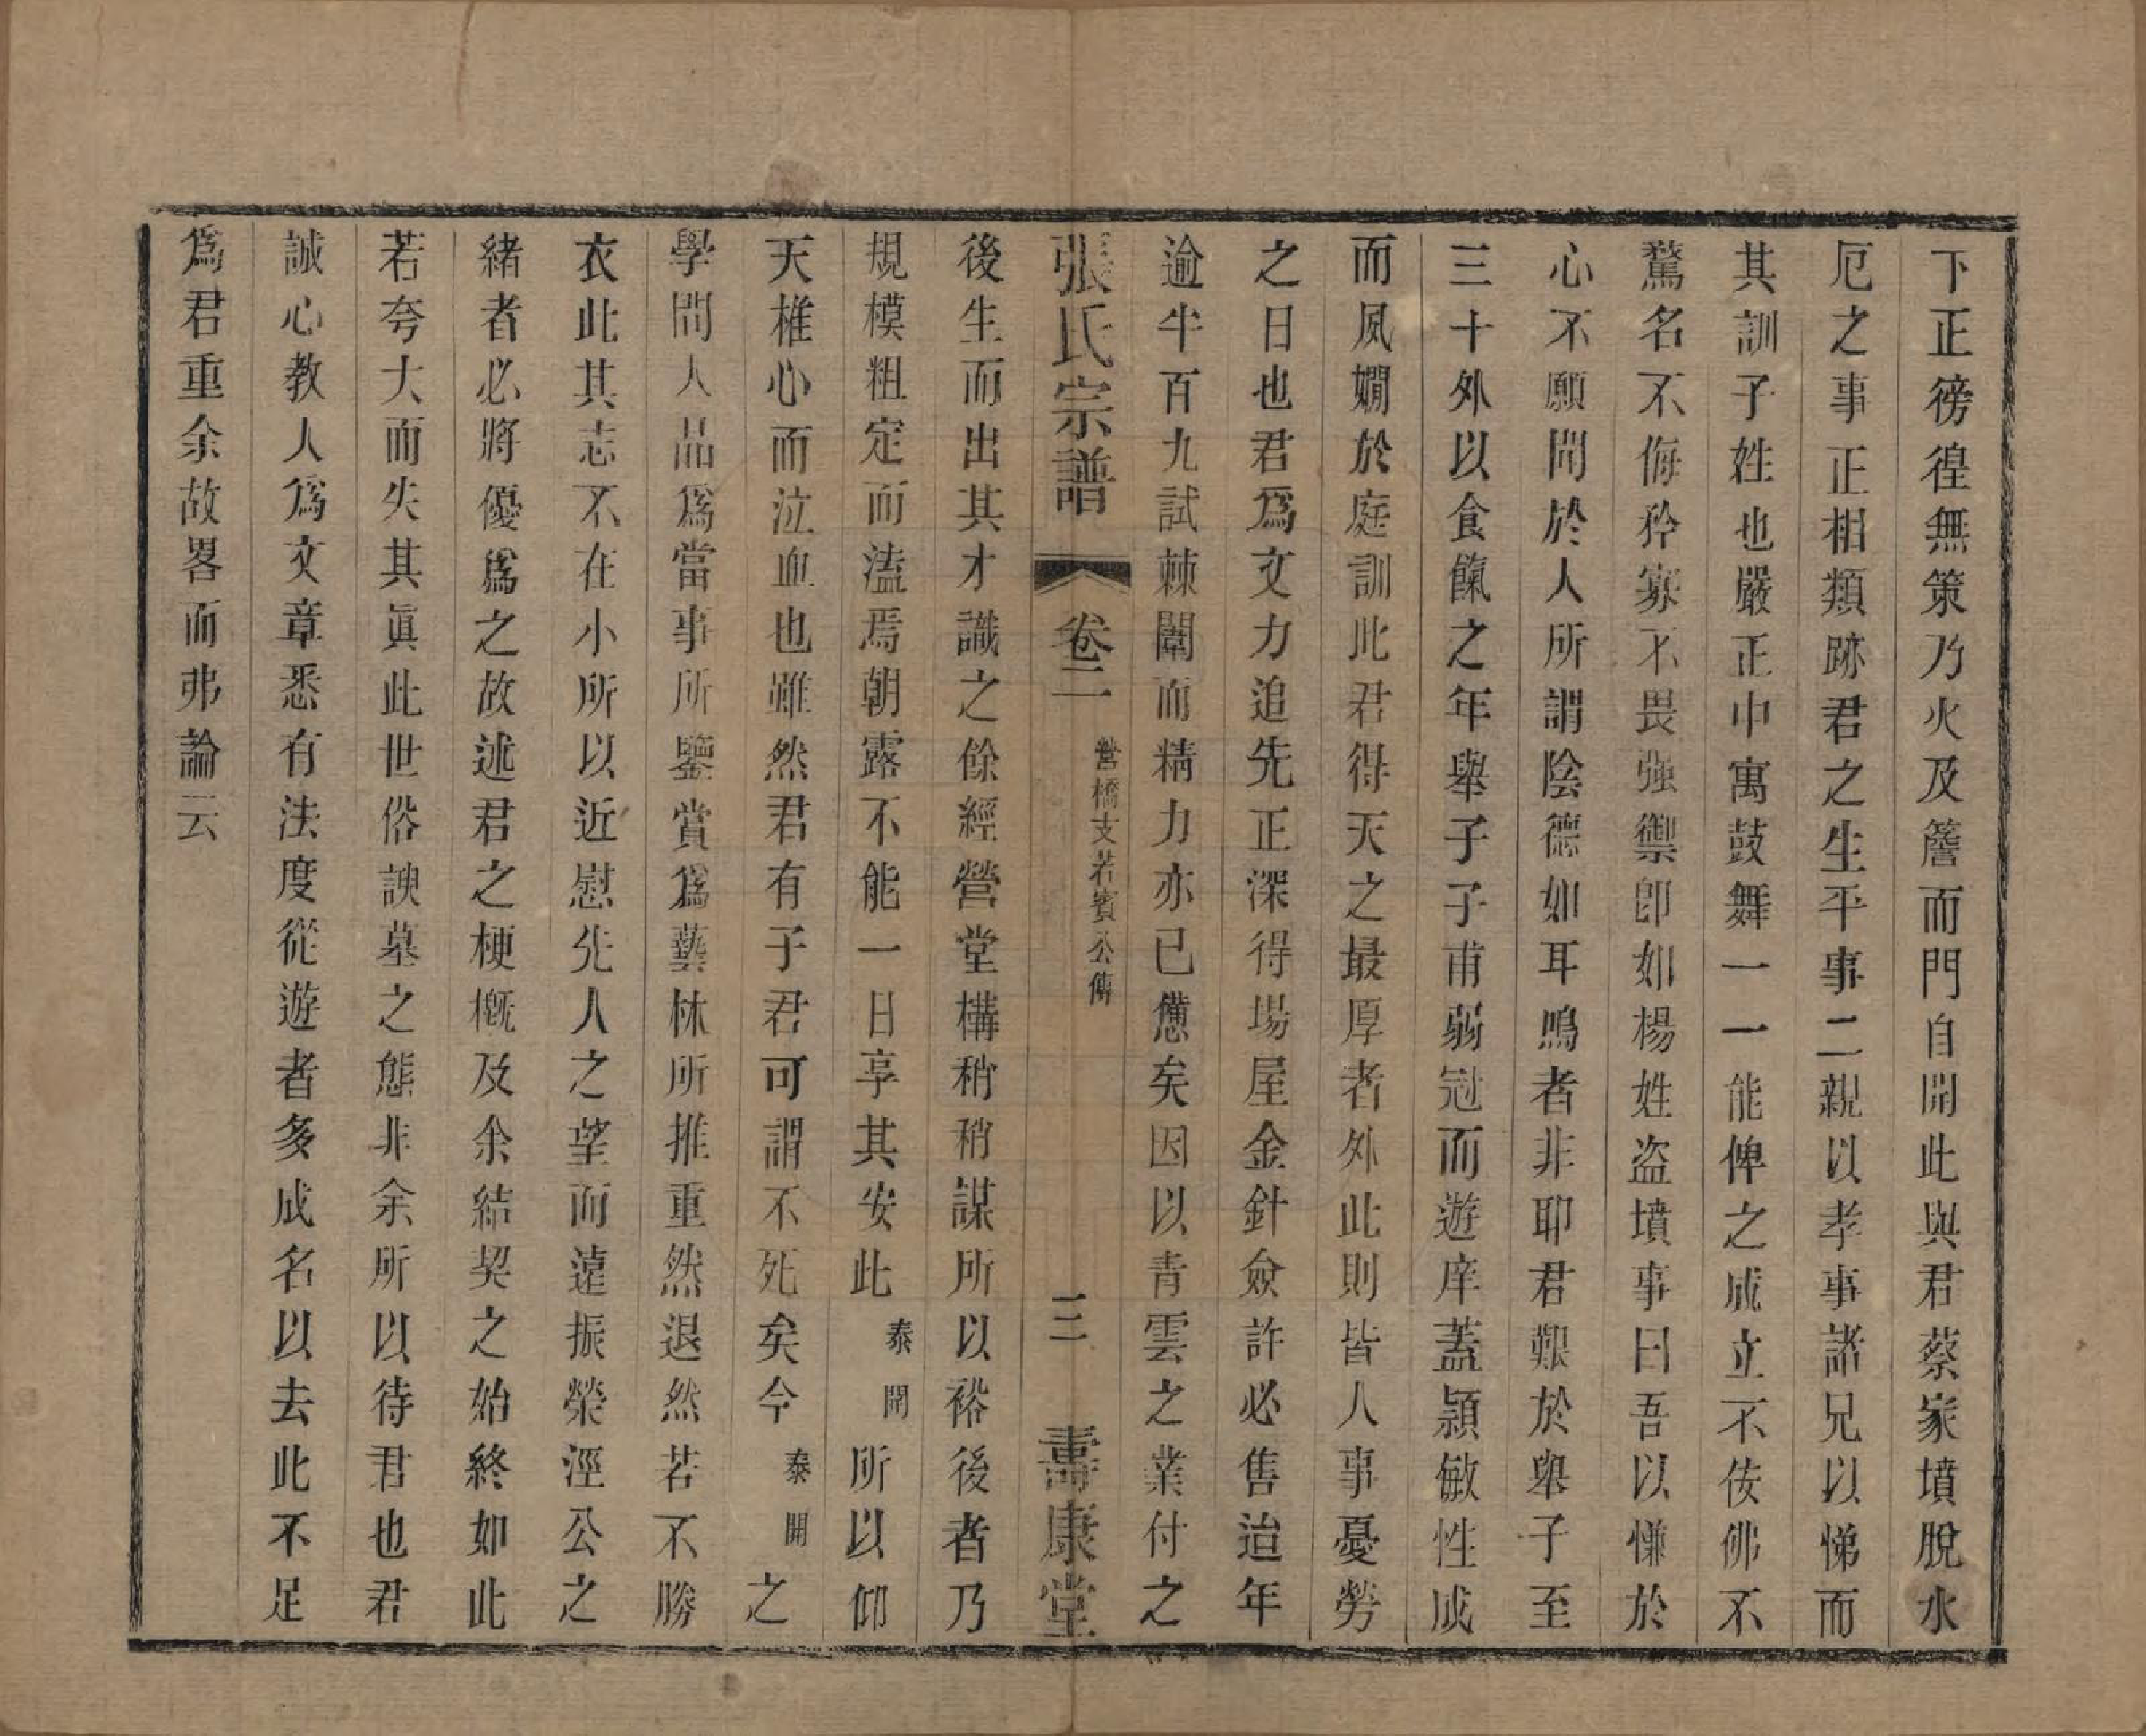 下正徬徨無策乃火及簷而門自開此與君蔡家墳脫水
厄之事正相類跡君之生平事二親以孝事諸兄以悌而
其訓子姓也嚴正中寓鼓舞一一能俾之成立不侫佛不
騖名不侮矜寡不畏强禦卽如楊姓盜墳事曰吾以慊於
心不願聞於人所謂陰德如耳鳴者非耶君艱於舉子至
三十外以食餼之年舉子子甫弱冠而遊庠蓋頴敏性成
而夙嫺於庭訓此君得天之最厚者外此則皆人事憂勞
之日也君爲文力追先正深得場屋金針僉許必售迨年
逾半百九試棘闈而精力亦已憊矣因以青雲之業付之
張氏宗譜 卷二 營橋支若賓公傳 三 壽康堂
後生而出其才識之餘經營堂構稍稍謀所以裕後者乃
規模粗定而溘焉朝露不能一日享其安此泰開所以仰
天椎心而泣血也雖然君有子君可謂不死矣今泰開之
學問人品爲當事所鑒賞爲藝林所推重然退然若不勝
衣此其志不在小所以近慰先人之望而遠振榮涇公之
緖者必將優爲之故述君之梗槪及余結契之始終如此
若夸大而失其眞此世俗諛墓之態非余所以待君也君
誠心教人爲文章悉有法度從遊者多成名以去此不足
爲君重余故畧而弗論云